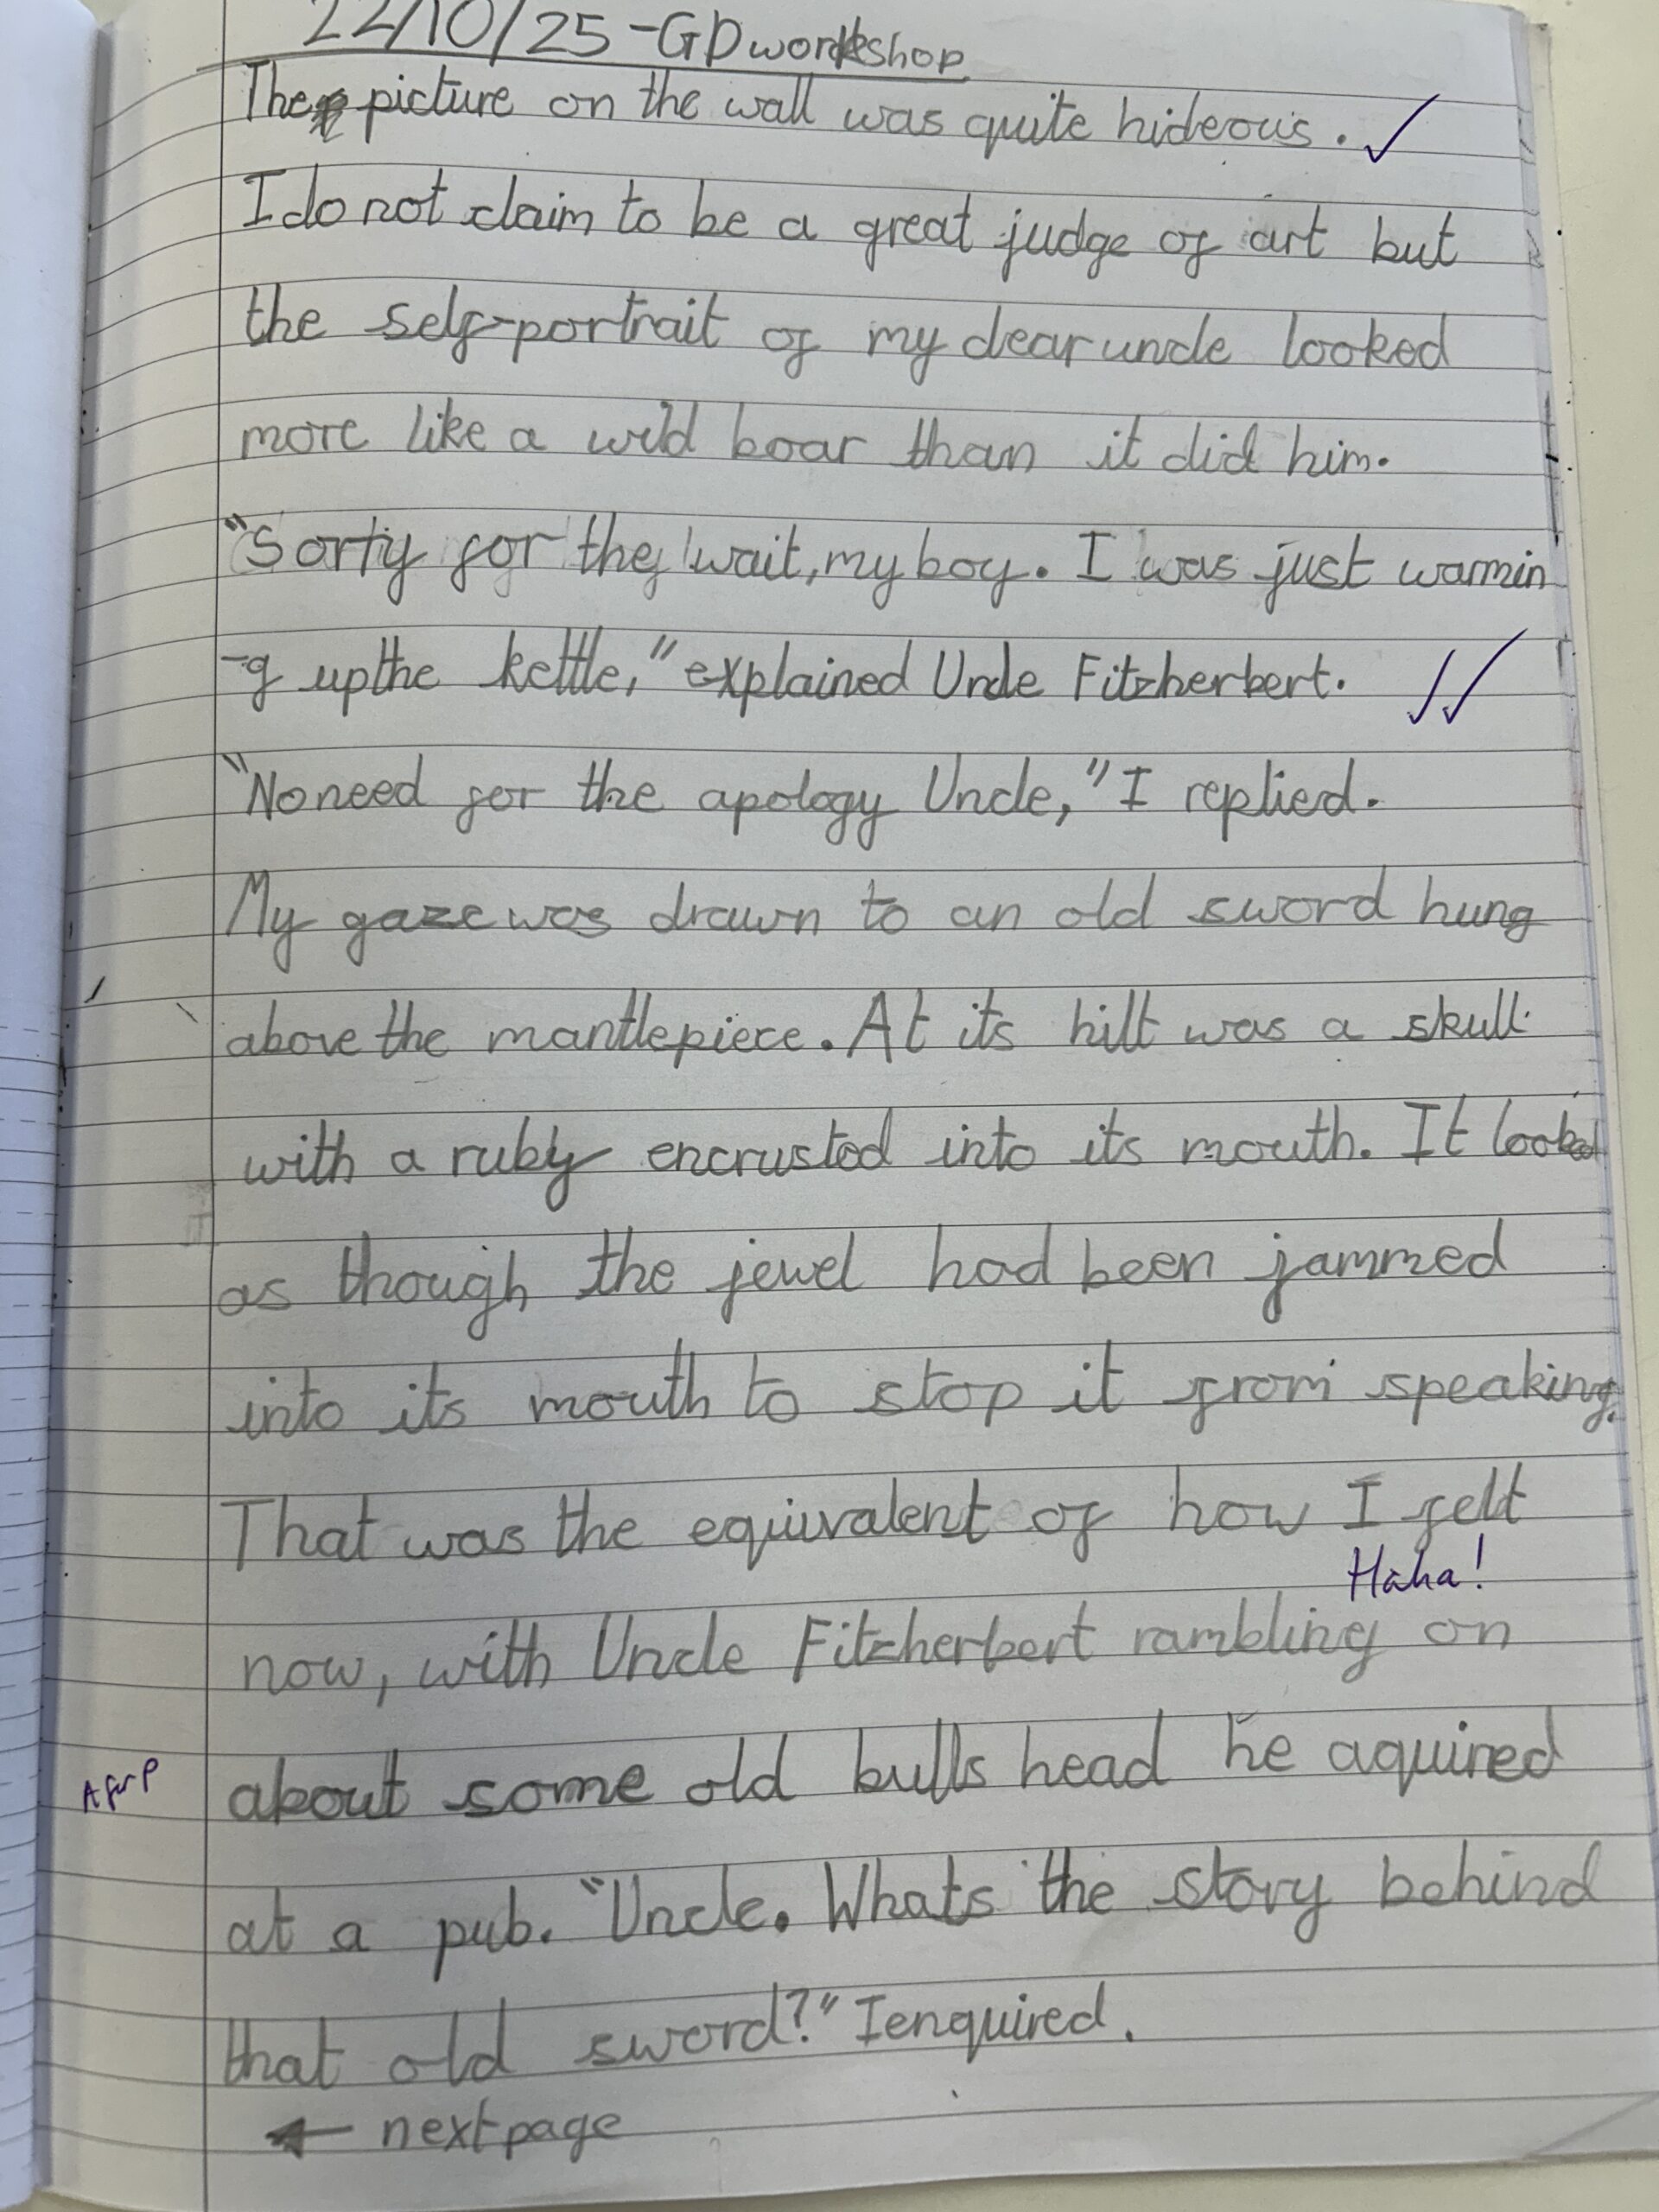 22/10/25 - GD workshop
The picture on the wall was quite hideous.
I do not claim to be a great judge of art but
the self-portrait of my dear uncle looked
more like a wild boar than it did him.
"Sorry for the wait, my boy. I was just warmin
-g up the kettle," explained Uncle Fitzherbert.
"No need for the apology Uncle," I replied.
My gaze was drawn to an old sword hung
above the mantlepiece. At its hilt was a skull
with a ruby encrusted into its mouth. It looked
as though the jewel had been jammed
into its mouth to stop it from speaking.
That was the equivalent of how I felt
Haha!
now, with Uncle Fitzherbert rambling on
about some old bulls head he aquired
at a pub. "Uncle. Whats the story behind
that old sword?" I enquired.
← next page